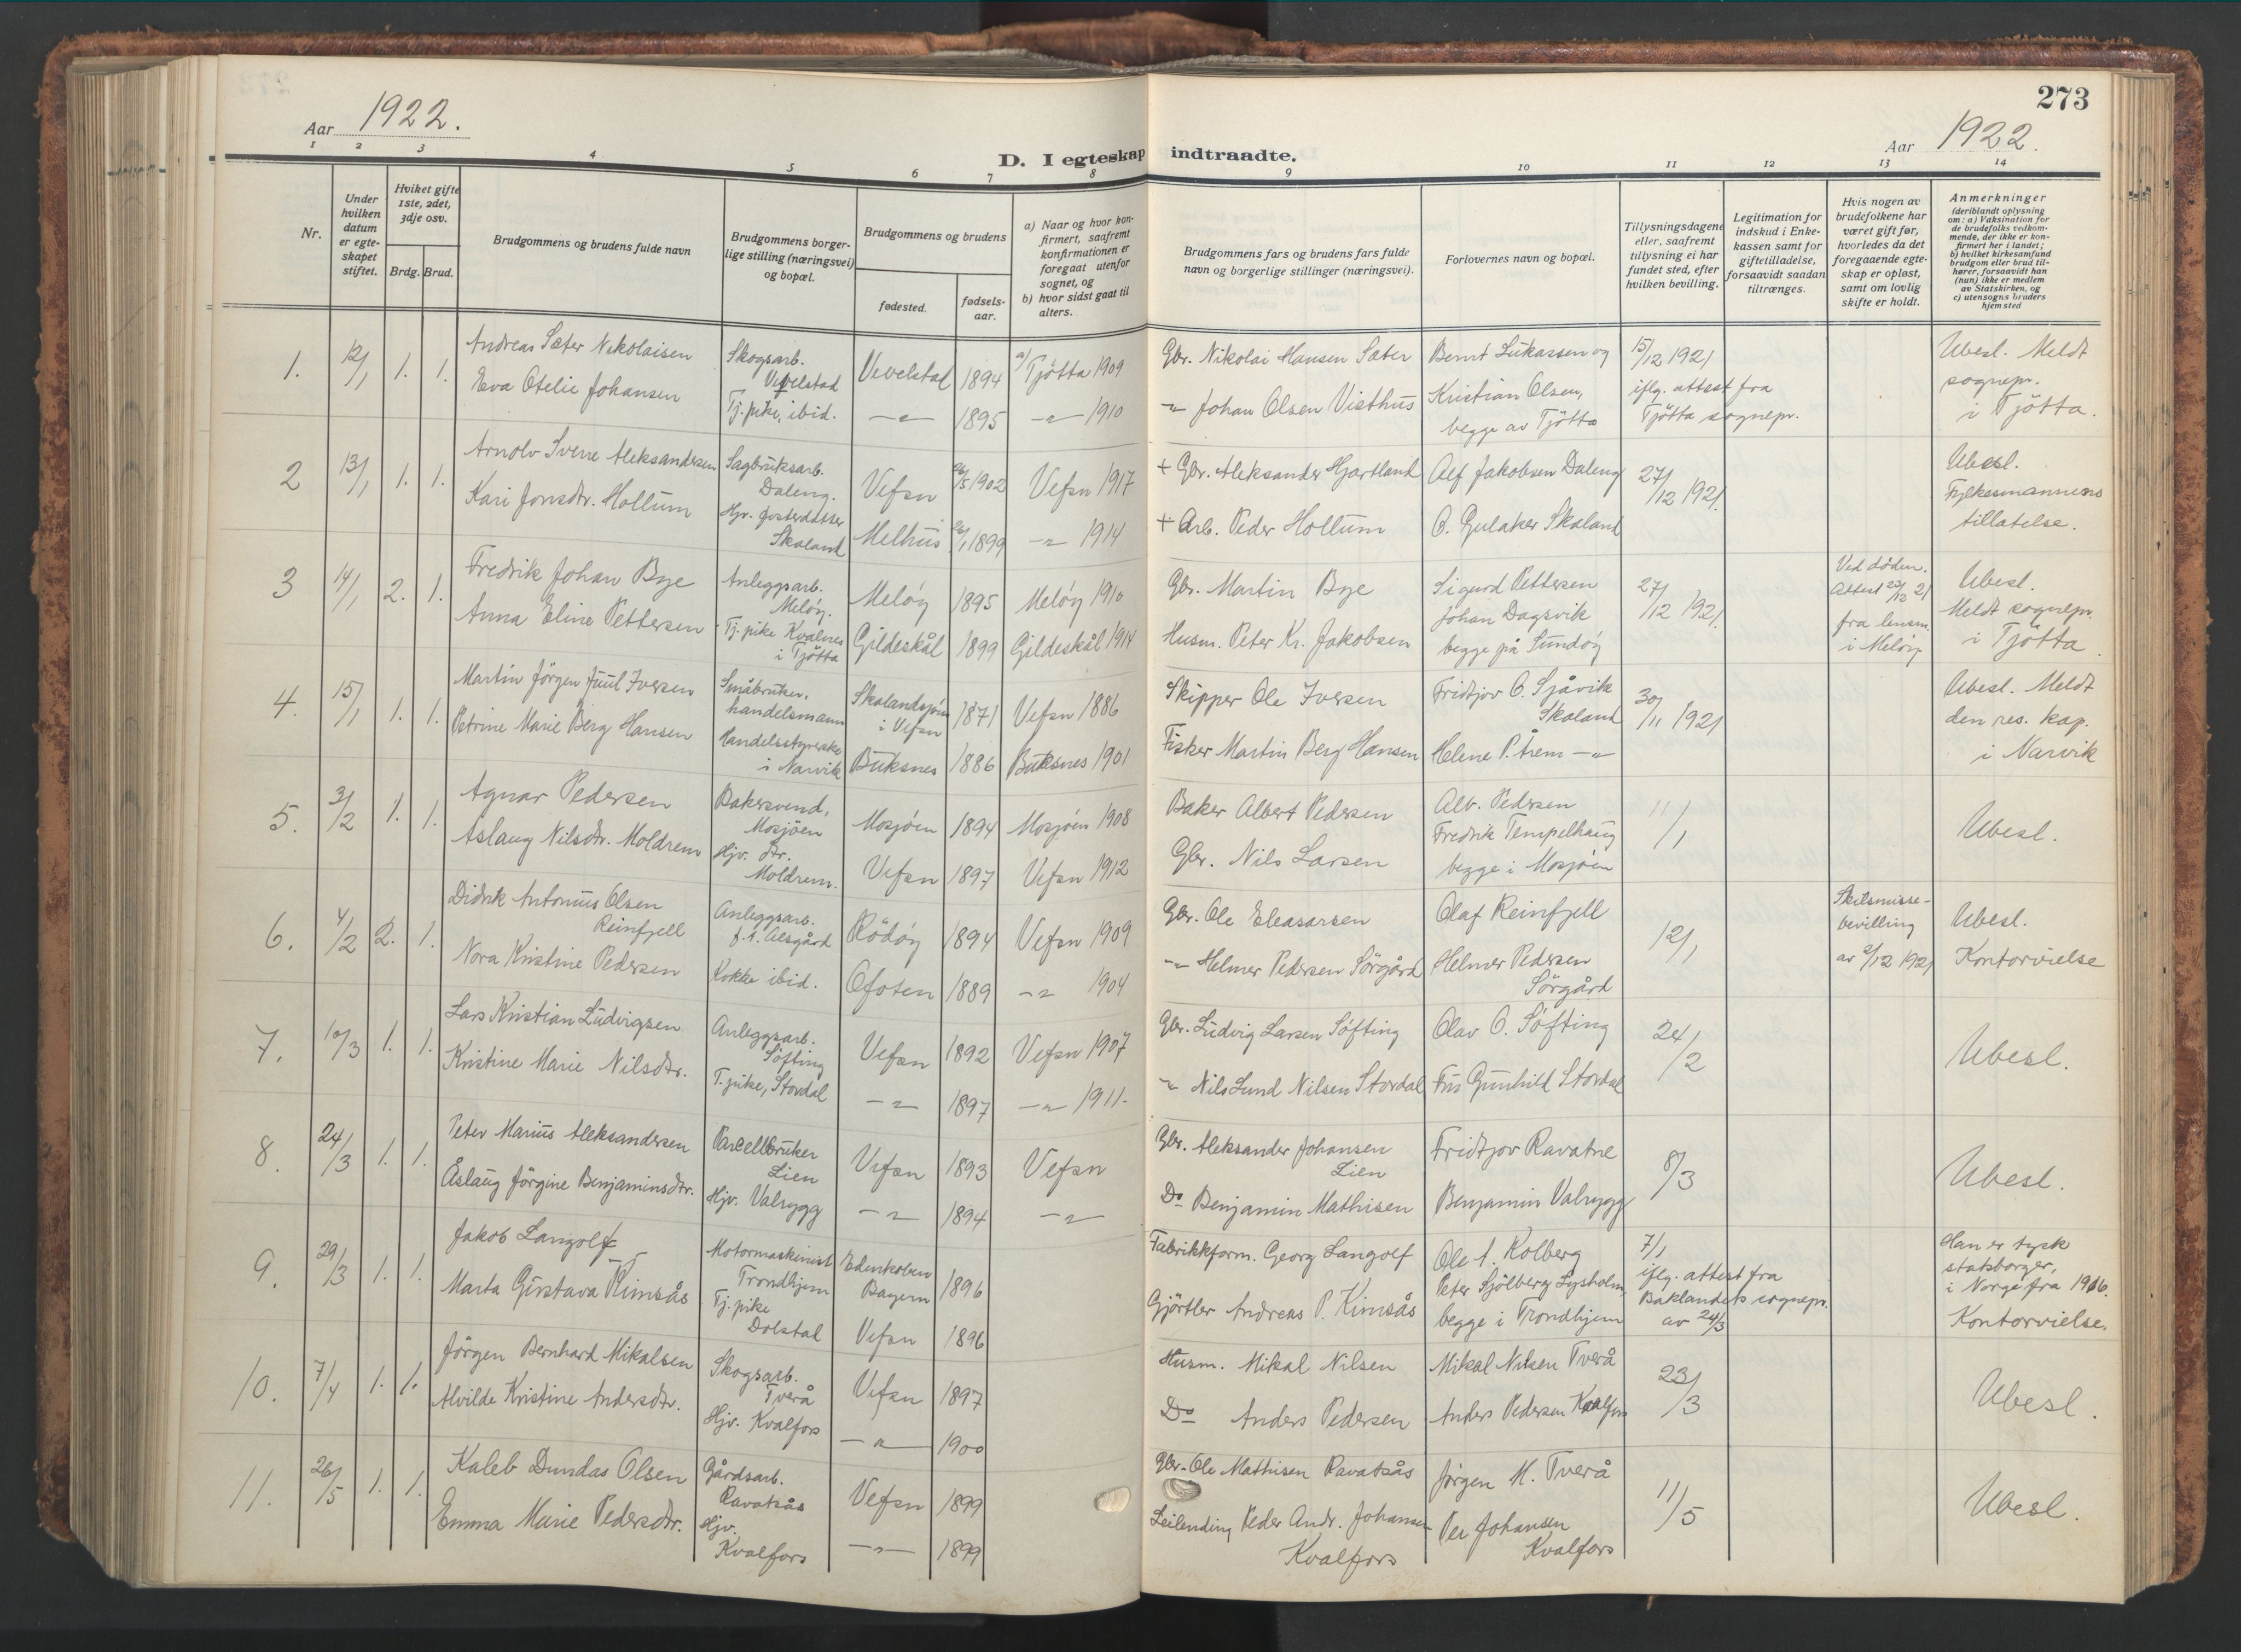 273
Aar 1922.
Aar 1922.
D. I egteskap indtraadte.
1 2 3 4 5 6 7 8 9 10 11 12 13 14
Nr.
Under hvilken datum er egte-skapet stiftet.
Hviket gifte 1ste, 2det, 3dje osv.
Brdg. Brud.
Brudgommens og brudens fulde navn
Brudgommens borger-lige stilling (næringsvei) og bopæl.
Brudgommens og brudens
fødested.
fødsels-aar.
a) Naar og hvor kon-firmert, saafremt konfirmationen er foregaat utenfor sognet, og
b) hvor sidst gaat til alters.
Brudgommens fars og brudens fars fulde navn og borgerlige stillinger (næringsvei).
Forlovernes navn og bopæl.
Tillysningsdagene eller, saafremt tillysning ei har fundet sted, efter hvilken bevilling.
Legitimation for indskud i Enke-kassen samt for giftetilladelse, forsaavidt saadan tiltrænges.
Hvis nogen av brudefolkene har været gift før, hvorledes da det foregaaende egte-skap er opløst, samt om lovlig skifte er holdt.
Anmerkninger (deriblandt oplysning om: a) Vaksination for de brudefolks vedkom-mende, der ikke er kon-firmert her i landet; b) hvilket kirkesamfund brudgom eller brud til-hører, forsaavidt han (hun) ikke er medlem av Statskirken, og c) utensogns bruders hjemsted
1. 12/1 1. 1. Andreas Sæter Nikolaisen
Skogsarb. Vevelstad
Vevelstad 1894 a/ Tjötta 1909
Gbr. Nikolai Hansen Sæter
Bernt Lukassen og
15/12 1921
Ubesl. Meldt
Eva Otelie Johansen
Tj. pike, ibid.
—"— 1895 —"— 1910
—"— Johan Olsen Visthus
Kristian Olsen,
begge av Tjötta
iflg. attest fra
Tjötta sognepr.
sognepr.
i Tjötta.
2 13/1 1. 1. Arnolv Sverre Aleksandersen
Sagbruksarb.
Daleng.
Vefsn 26/5 1902 Vefsn 1917
+ Gbr. Aleksander Hjartland
Alf Jakobsen Daleng
27/12 1921.
Ubesl.
Fylkesmannens
tillatelse.
Kari Jonsdtr. Hollum
Hjv. fosterdatter
Skaland
Melhus 26/1 1899 —"— 1914
+ Arb. Peder Hollum
O. Gulaker Skaland
3 14/1 2. 1. Fredrik Johan Bye
Anleggsarb.
Meløy.
Meløy 1895 Meløy 1910
Gbr. Martin Bye
Sigurd Pettersen
27/12 1921.
Ved døden.
Attest 23/12 21
fra lensm.
i Meløy
Ubesl.
Meldt sognepr.
i Tjötta.
Anna Eline Pettersen
Tj. pike Kvalnes
i Tjötta
Gildeskål 1899 Gildeskål 1914
Husm. Peter Kr. Jakobsen
Johan Dagsvik
begge på Sundøy
4. 15/1 1. 1. Martin Jörgen Juul Iversen
Småbruker,
handelsmann
i Vefsn 1871 Vefsn 1886
Skipper Ole Iversen
Fridtjov O. Sjåvik
Skaland
30/11 1921
Ubesl. Meldt
den res. kap.
i Narvik
Petrine Marie Berg Hansen
Handelsstyrerske
i Narvik
Buksnes 1886 Buksnes 1901
Fisker Martin Berg Hansen
Helene P. Årem —"—
5. 3/2 1. 1. Agnar Pedersen
Bakersvend,
Mosjöen
Mosjöen 1894 Mosjöen 1908
Baker Albert Pedersen
Alb. Pedersen
11/1
Ubesl.
Aslaug Nilsdtr. Moldrem
Hjv. dtr.
Moldrem.
Vefsn 1897 Vefsn 1912
Gbr. Nils Larsen
Fredrik Tempelhaug
begge i Mosjöen
6. 4/2 2. 1. Didrik Antonius Olsen
Reinfjell
Anleggsarb.
Rödöy 1894 Vefsn 1909
Gbr. Ole Eleasarsen
Olaf Reinfjell
12/1
Skilsmisse-
bevilling
av 2/12 1921
Ubesl.
Kontorvielse
Nora Kristine Pedersen
Kokke ibid.
Ofoten 1889 —"— 1904
—"— Helmer Pedersen Sörgård
Helmer Pedersen
Sörgård
7. 10/3 1. 1. Lars Kristian Ludvigsen
Anleggsarb.
Söfting
Vefsn 1892 Vefsn 1907
Gbr. Ludvig Larsen Söfting
Olav O. Söfting
24/2
Ubesl.
Kristine Marie Nilsdtr.
T. pike, Stordal
—"— 1897 —"— 1911.
—"— Nils Lund Nilsen Stordal
Fru Gunhild Stordal
8. 24/3 1. 1. Peter Marius Aleksandersen
Parcellbruker
Lien
Vefsn 1893 Vefsn
Gbr. Aleksander Johansen
Lien
Fridtjov Ravatne
8/3
Ubesl.
Åslaug Jörgine Benjaminsdtr.
Hjv. Valrygg
—"— 1894 —"—
Do Benjamin Mathisen
Benjamin Valrygg
9. 29/3 1. 1. Jakob Langolf
Motormaskinist
Trondhjem
Edenkoben
Bayern 1896
Fabrikkform. Georg Langolf
Ole A. Kolberg
7/1
iflg. attest fra
Baklandets sognepr.
av 24/3
Han er tysk
statsborger,
i Norge fra 1916.
Kontorvielse.
Marta Gustava Kimsås
Tj. pike
Dolstad
Vefsn 1896
Gjörtler Andreas P. Kimsås
Peter Sjölberg Lysholm,
begge i Trondhjem
10. 7/4 1. 1. Jörgen Bernhard Mikalsen
Skogsarb.
Tverå
Vefsn 1897
Husm. Mikal Nilsen
Mikal Nilsen Tverå
23/3
Ubesl.
Alvilde Kristine Andersdtr.
Hjv. Kvalfors
—"— 1900
Do Anders Pedersen
Anders Pedersen Kvalfors
11. 26/5 1. 1. Kaleb Dundas Olsen
Gårdsarb.
Ravatsås
Vefsn 1899
Gbr. Ole Mathisen Ravatsås
Jörgen M. Tverå
11/5
Ubesl.
Emma Marie Pedersdtr.
Hjv.
Kvalfors
—"— 1899
Leilending Peder Andr. Johansen
Kvalfors
Per Johansen
Kvalfors